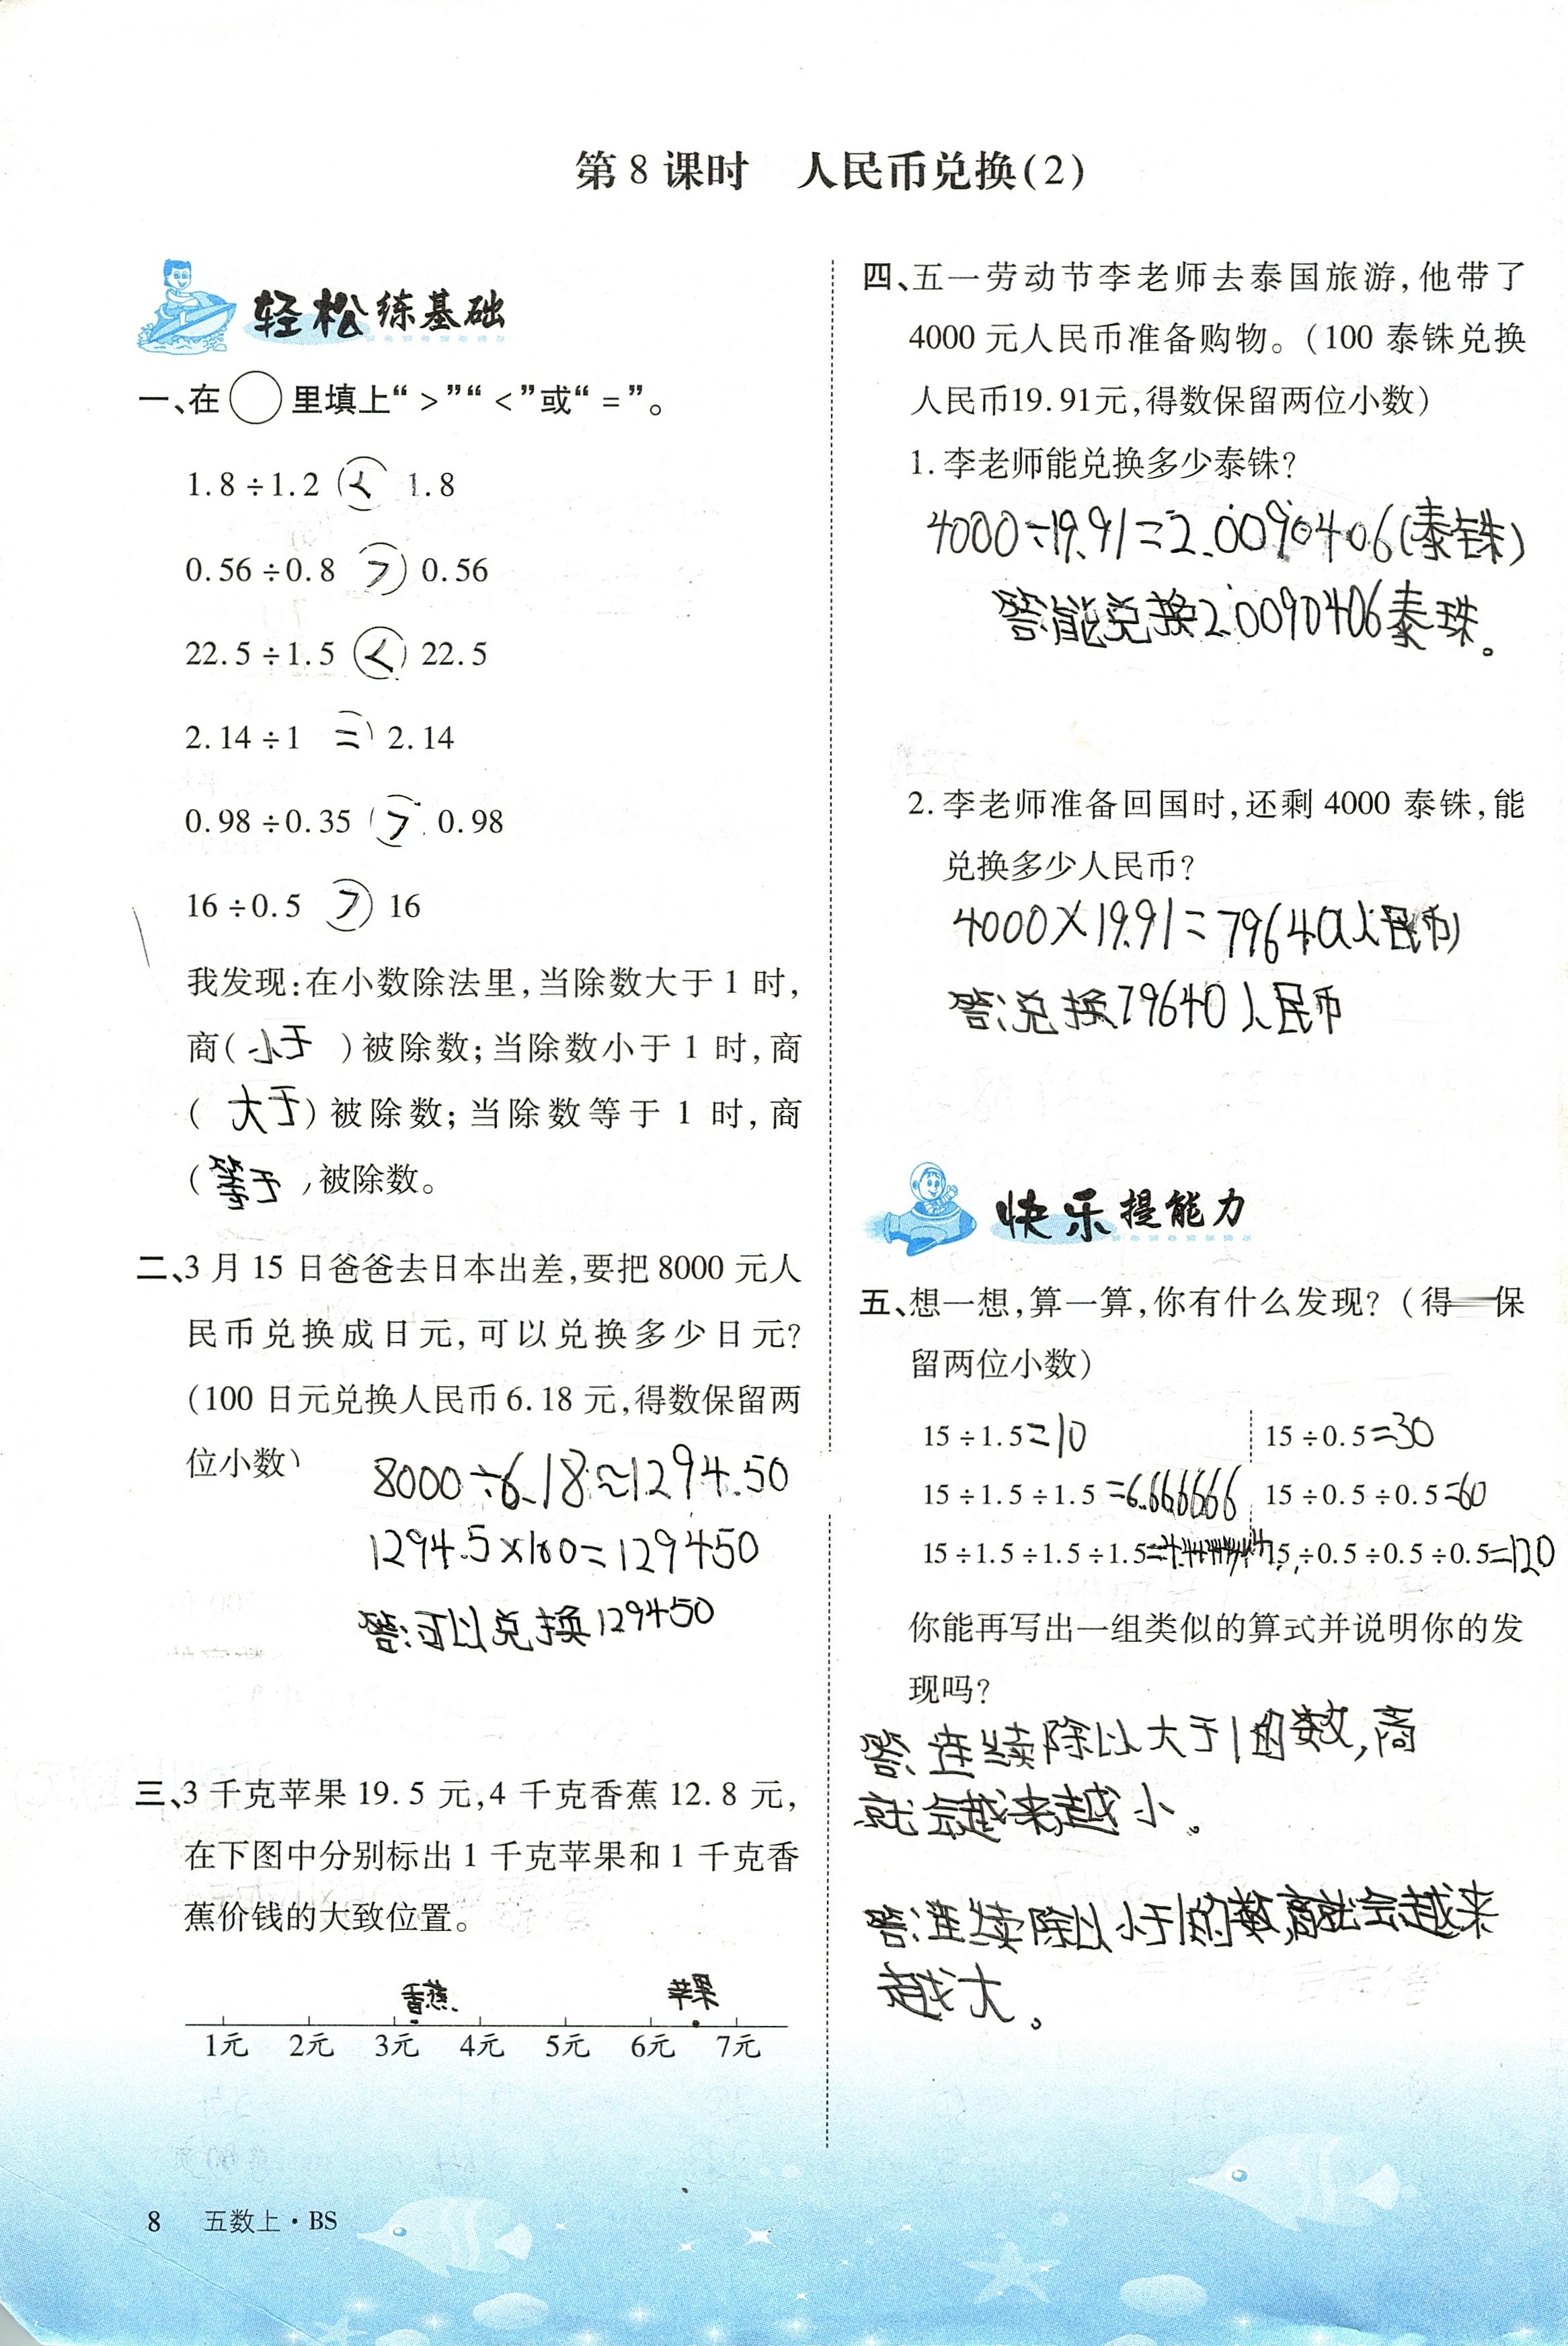 第8课时　人民币兑换(2)
轻松练基础
一、在○里填上“>”“<”或“=”。
1.8÷1.2 < 1.8
0.56÷0.8 > 0.56
22.5÷1.5 < 22.5
2.14÷1 = 2.14
0.98÷0.35 > 0.98
16÷0.5 > 16
我发现:在小数除法里,当除数大于1时,
商(小于)被除数;当除数小于1时,商
(大于)被除数;当除数等于1时,商
(等于)被除数。
二、3月15日爸爸去日本出差,要把8000元人
民币兑换成日元,可以兑换多少日元?
(100日元兑换人民币6.18元,得数保留两
位小数)
8000÷6.18≈1294.50
1294.5×100=129450
答:可以兑换129450
三、3千克苹果19.5元,4千克香蕉12.8元,
在下图中分别标出1千克苹果和1千克香
蕉价钱的大致位置。
香蕉 苹果
1元 2元 3元 4元 5元 6元 7元
8 五数上·BS
四、五一劳动节李老师去泰国旅游,他带了
4000元人民币准备购物。(100泰铢兑换
人民币19.91元,得数保留两位小数)
1.李老师能兑换多少泰铢?
4000÷19.91=2.0090406(泰铢)
答:能兑换2.0090406泰珠。
2.李老师准备回国时,还剩4000泰铢,能
兑换多少人民币?
4000×19.91=79640(人民币)
答:兑换79640人民币
快乐提能力
五、想一想,算一算,你有什么发现?(得 保
留两位小数)
15÷1.5=10 15÷0.5=30
15÷1.5÷1.5=6.666666 15÷0.5÷0.5=60
15÷1.5÷1.5÷1.5= 15÷0.5÷0.5÷0.5=120
你能再写出一组类似的算式并说明你的发
现吗?
答:连续除以大于1的数,商
就会越来越小。
答:连续除以小于1的数,商就会越来
越大。